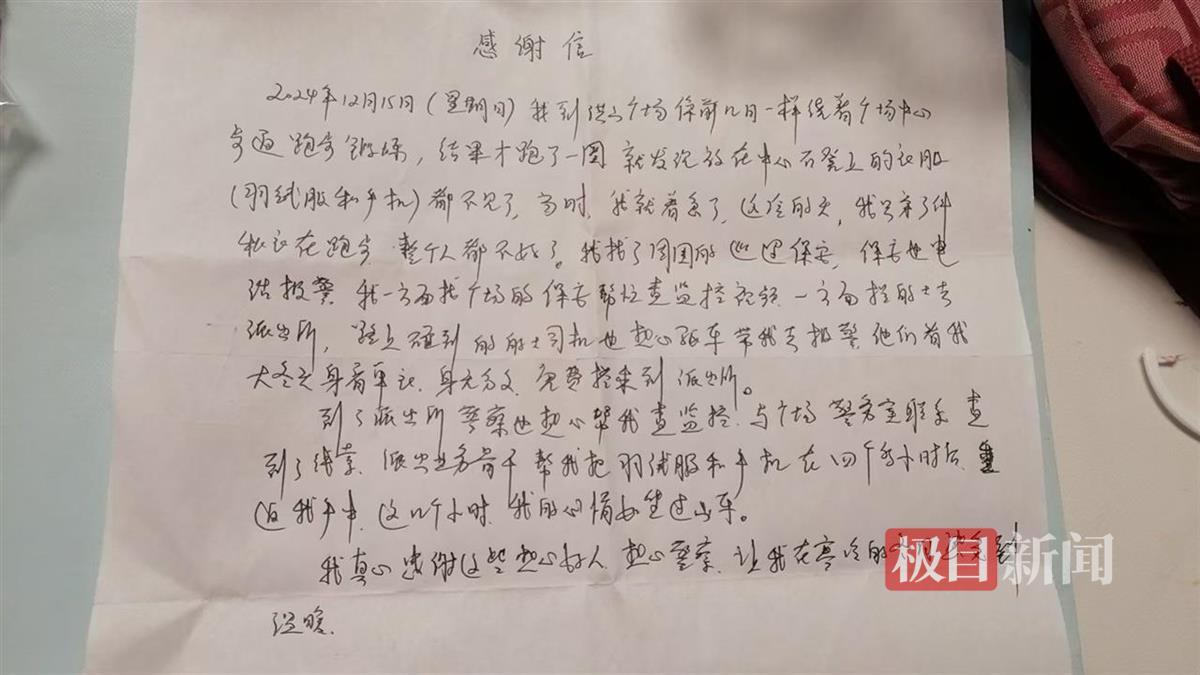 感谢信
2024年12月15日(星期日)我到洪山广场像前几日一样绕着广场中心
步道跑步锻炼,结果才跑了一圈就发现放在中心石凳上的衣服
(羽绒服和手机)都不见了,当时,我就着急了,这冷的天,我只穿了件
秋衣在跑步 整个人都不好了。我找了周围的巡逻保安,保安也电
话报警 我一方面找广场的保安帮忙查监控视频 一方面拦的士去
派出所,路上碰到的的士司机也热心张车带我去报警,他们看我
大冬天身着单衣,身无分文,免费搭乘到派出所。
到了派出所警察也热心帮我查监控,与广场警务室联系 查
到了线索,派出所 帮我把羽绒服和手机在四个多小时后
返我手中,这几个小时,我的心情如坐过山车。
我真心感谢这些热心好人 热心警察,让我在寒冷的
温暖.
极目新闻